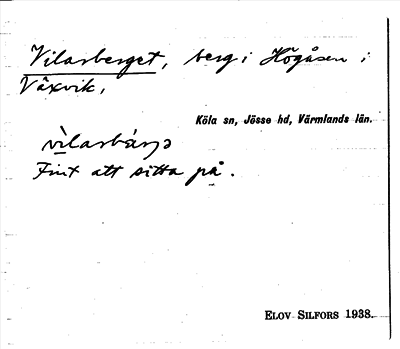 Vilarberget, berg i Högåsen i
Växvik,
Köla sn, Jösse hd, Värmlands län.
Fint att sitta på.
ELOV SILFORS 1938.